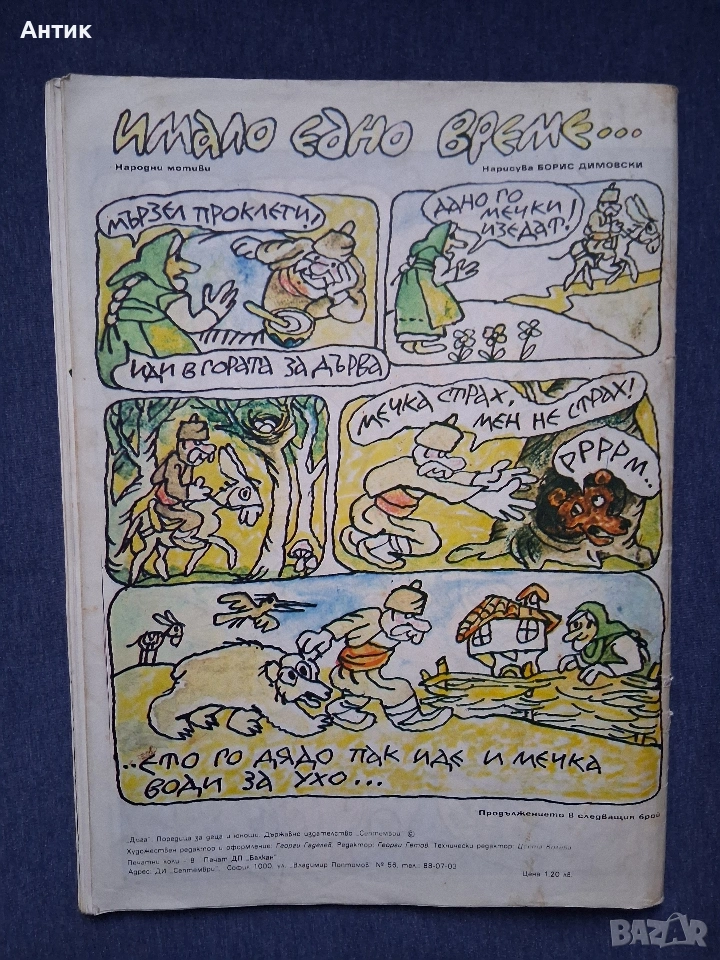 Антик
ИМАЛО ЕДНО ВРЕМЕ...
Народни мотиви
Нарисува БОРИС ДИМОВСКИ
МЪРЗЕЛ ПРОКЛЕТИ!
ИДИ В ГОРАТА ЗА ДЪРВА
ДАНО ГО
МЕЧКИ
ИЗЕДАТ!
МЕЧКА СТРАХ,
МЕН НЕ СТРАХ!
РРРРМ..
..ЕТО ГО ДЯДО ПАК ИДЕ И МЕЧКА
ВОДИ ЗА УХО...
Продължението в следващия брой
„Дъга". Поредица за деца и юноши. Държавно издателство „Септември" ©
Художествен редактор и оформление: Георги Гаделев. Редактор: Георги Гетов. Технически редактор:
Печатни коли – 8 Печат ДП „Балкан"
Адрес: ДИ „Септември", София 1000, ул. „Владимир Поптомов" № 56, тел.: 88-07-03
Цена 1,20 лв.
BAZAR